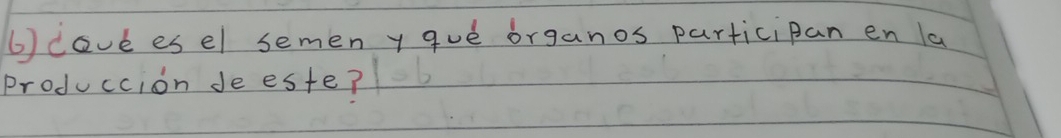 6) ¿Qué es el semen y qué órganos participan en la
Producción de este?